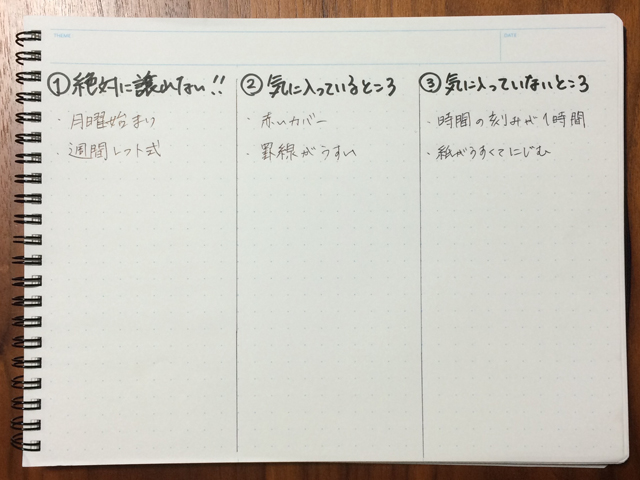 THEME
DATE
① 絶対に譲れない!!
・月曜始まり
・週間レフト式
② 気に入っているところ
・赤いカバー
・罫線がうすい
③ 気に入っていないところ
・時間の刻みが1時間
・紙がうすくてにじむ